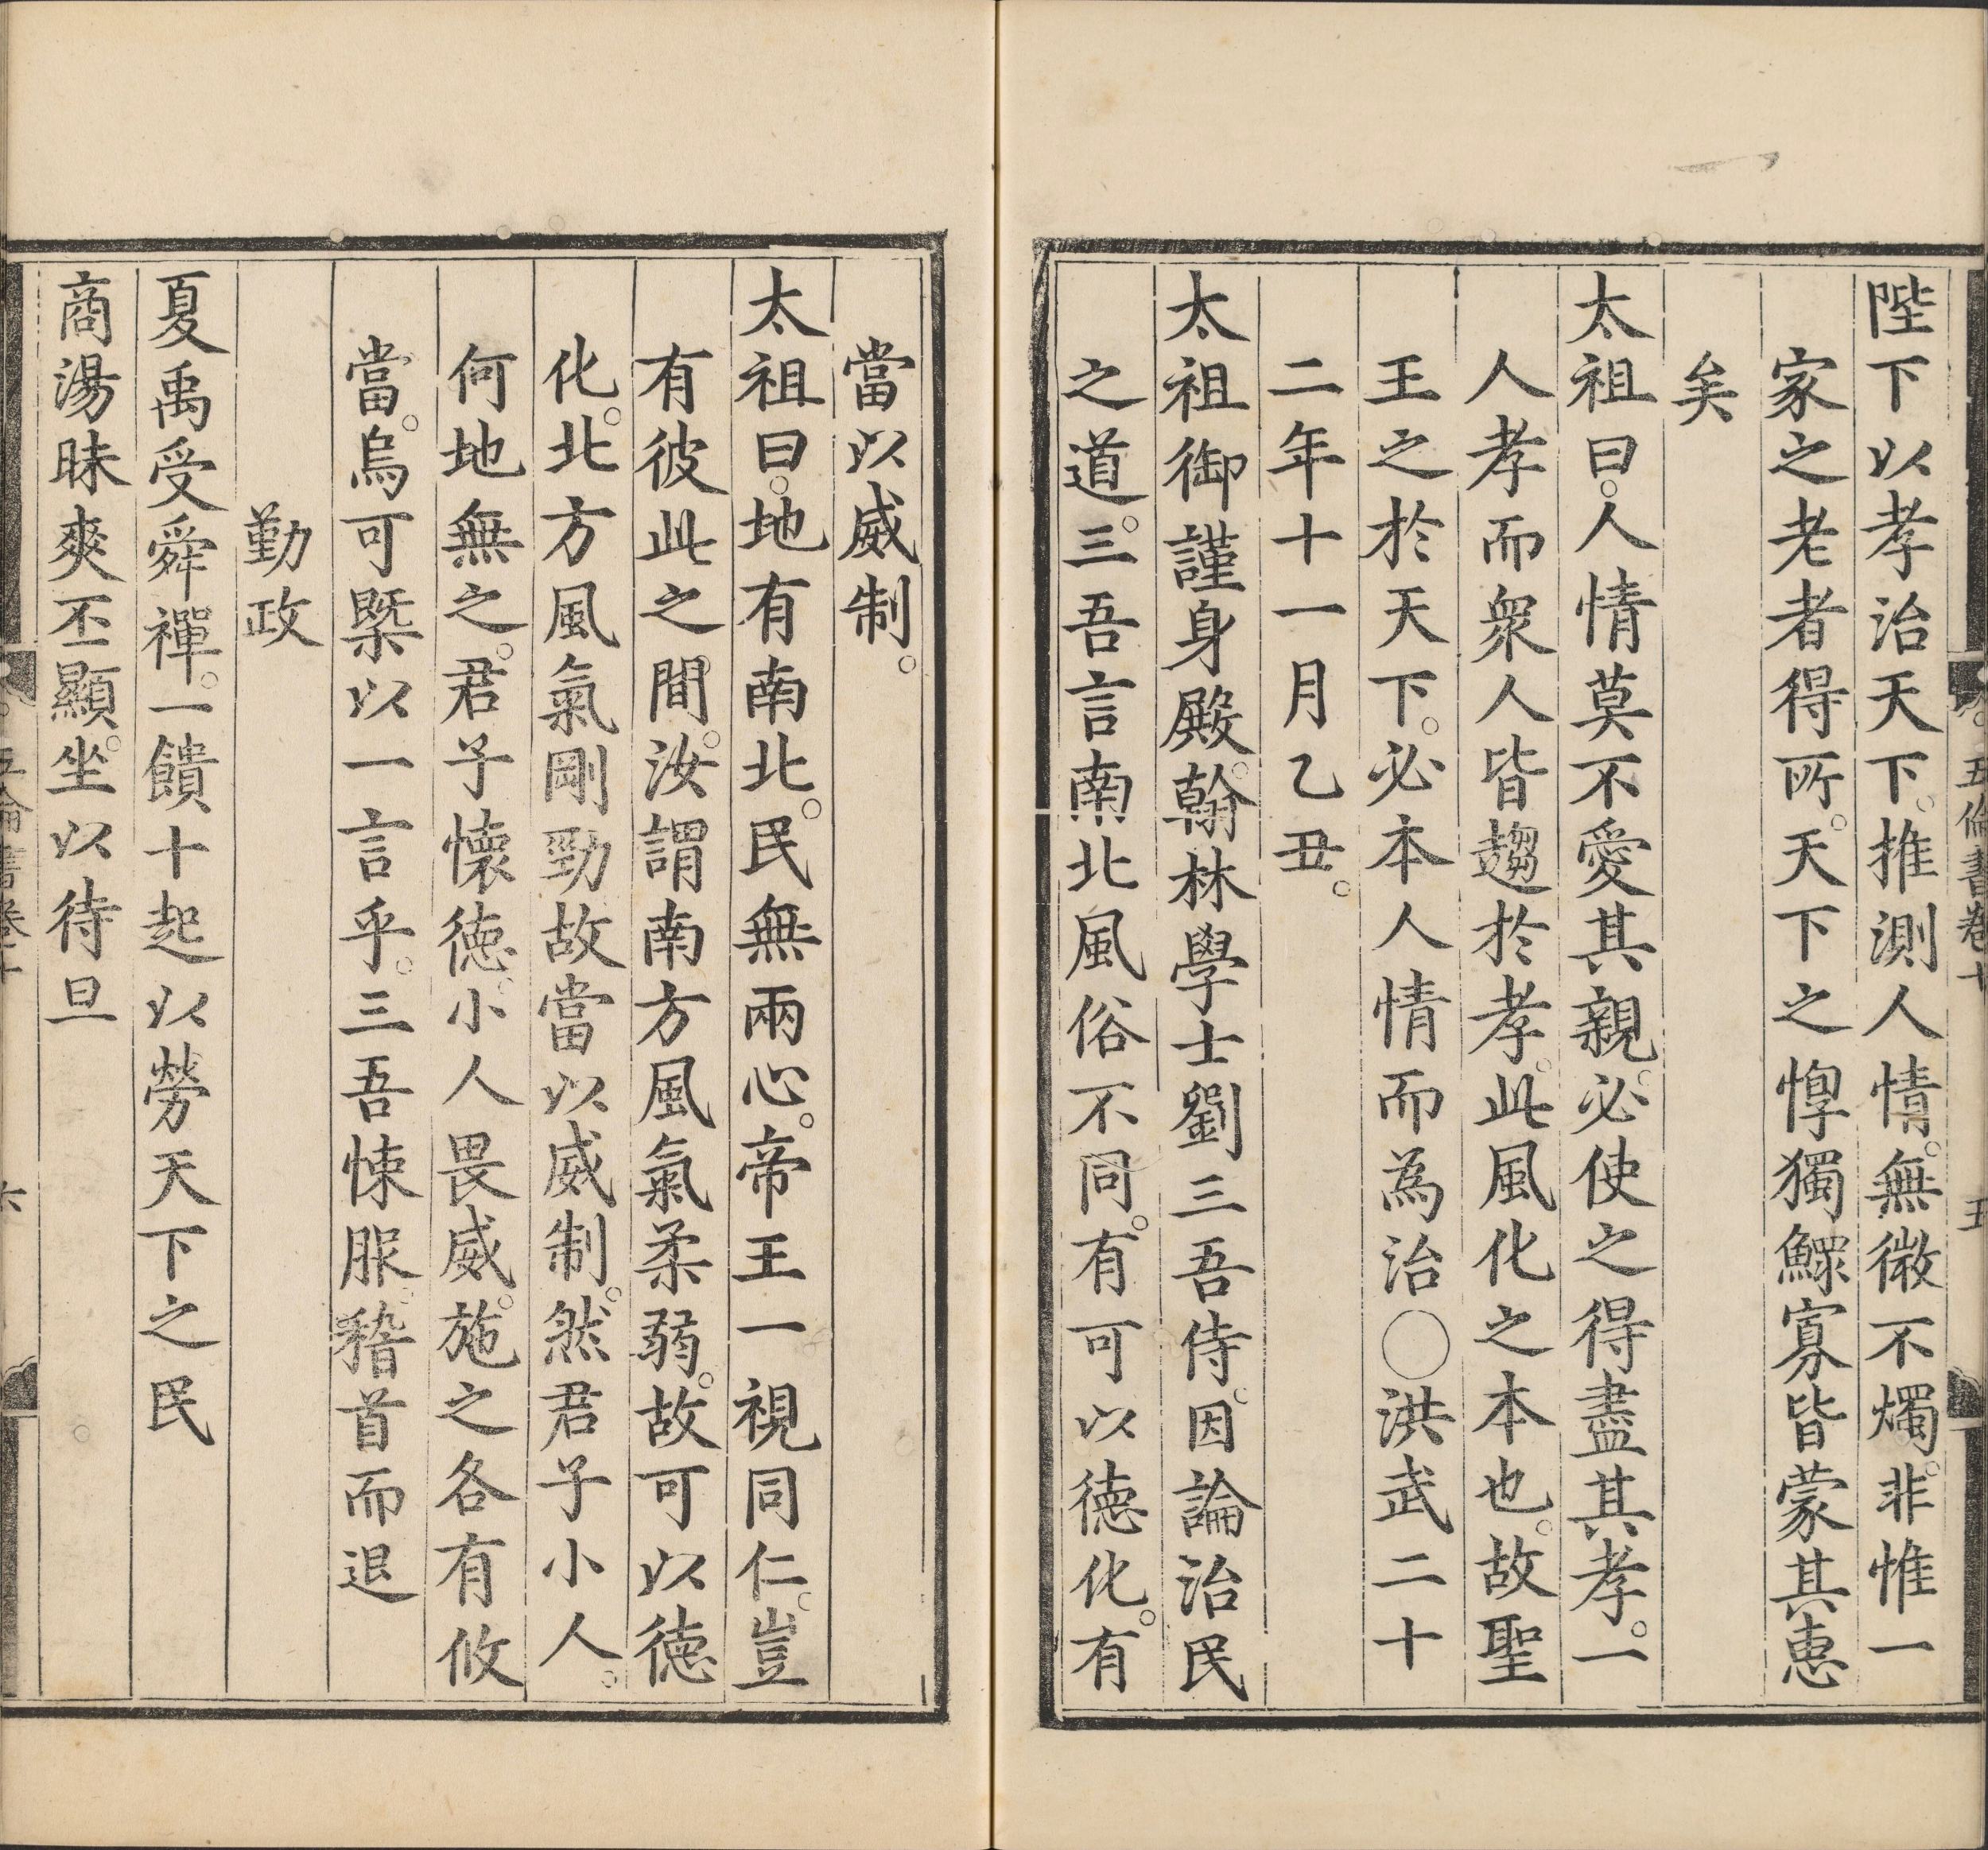 陛下以孝治天下。推測人情。無微不燭。非惟一
家之老者得所。天下之惸獨鰥寡皆蒙其惠
矣
太祖曰。人情莫不愛其親。必使之得盡其孝。一
人孝而衆人皆趨於孝。此風化之本也。故聖
王之於天下。必本人情而為治○洪武二十
二年十一月乙丑。
太祖御謹身殿。翰林學士劉三吾侍。因論治民
之道。三吾言南北風俗不同。有可以德化。有
當以威制。
太祖曰。地有南北。民無兩心。帝王一視同仁。豈
有彼此之間。汝謂南方風氣柔弱。故可以德
化。北方風氣剛勁故當以威制。然君子小人。
何地無之。君子懷德。小人畏威。施之各有攸
當。烏可槩以一言乎。三吾悚服。稽首而退
勤政
夏禹受舜禪。一饋十起以勞天下之民
商湯昧爽丕顯。坐以待旦
五倫書卷十
五
六